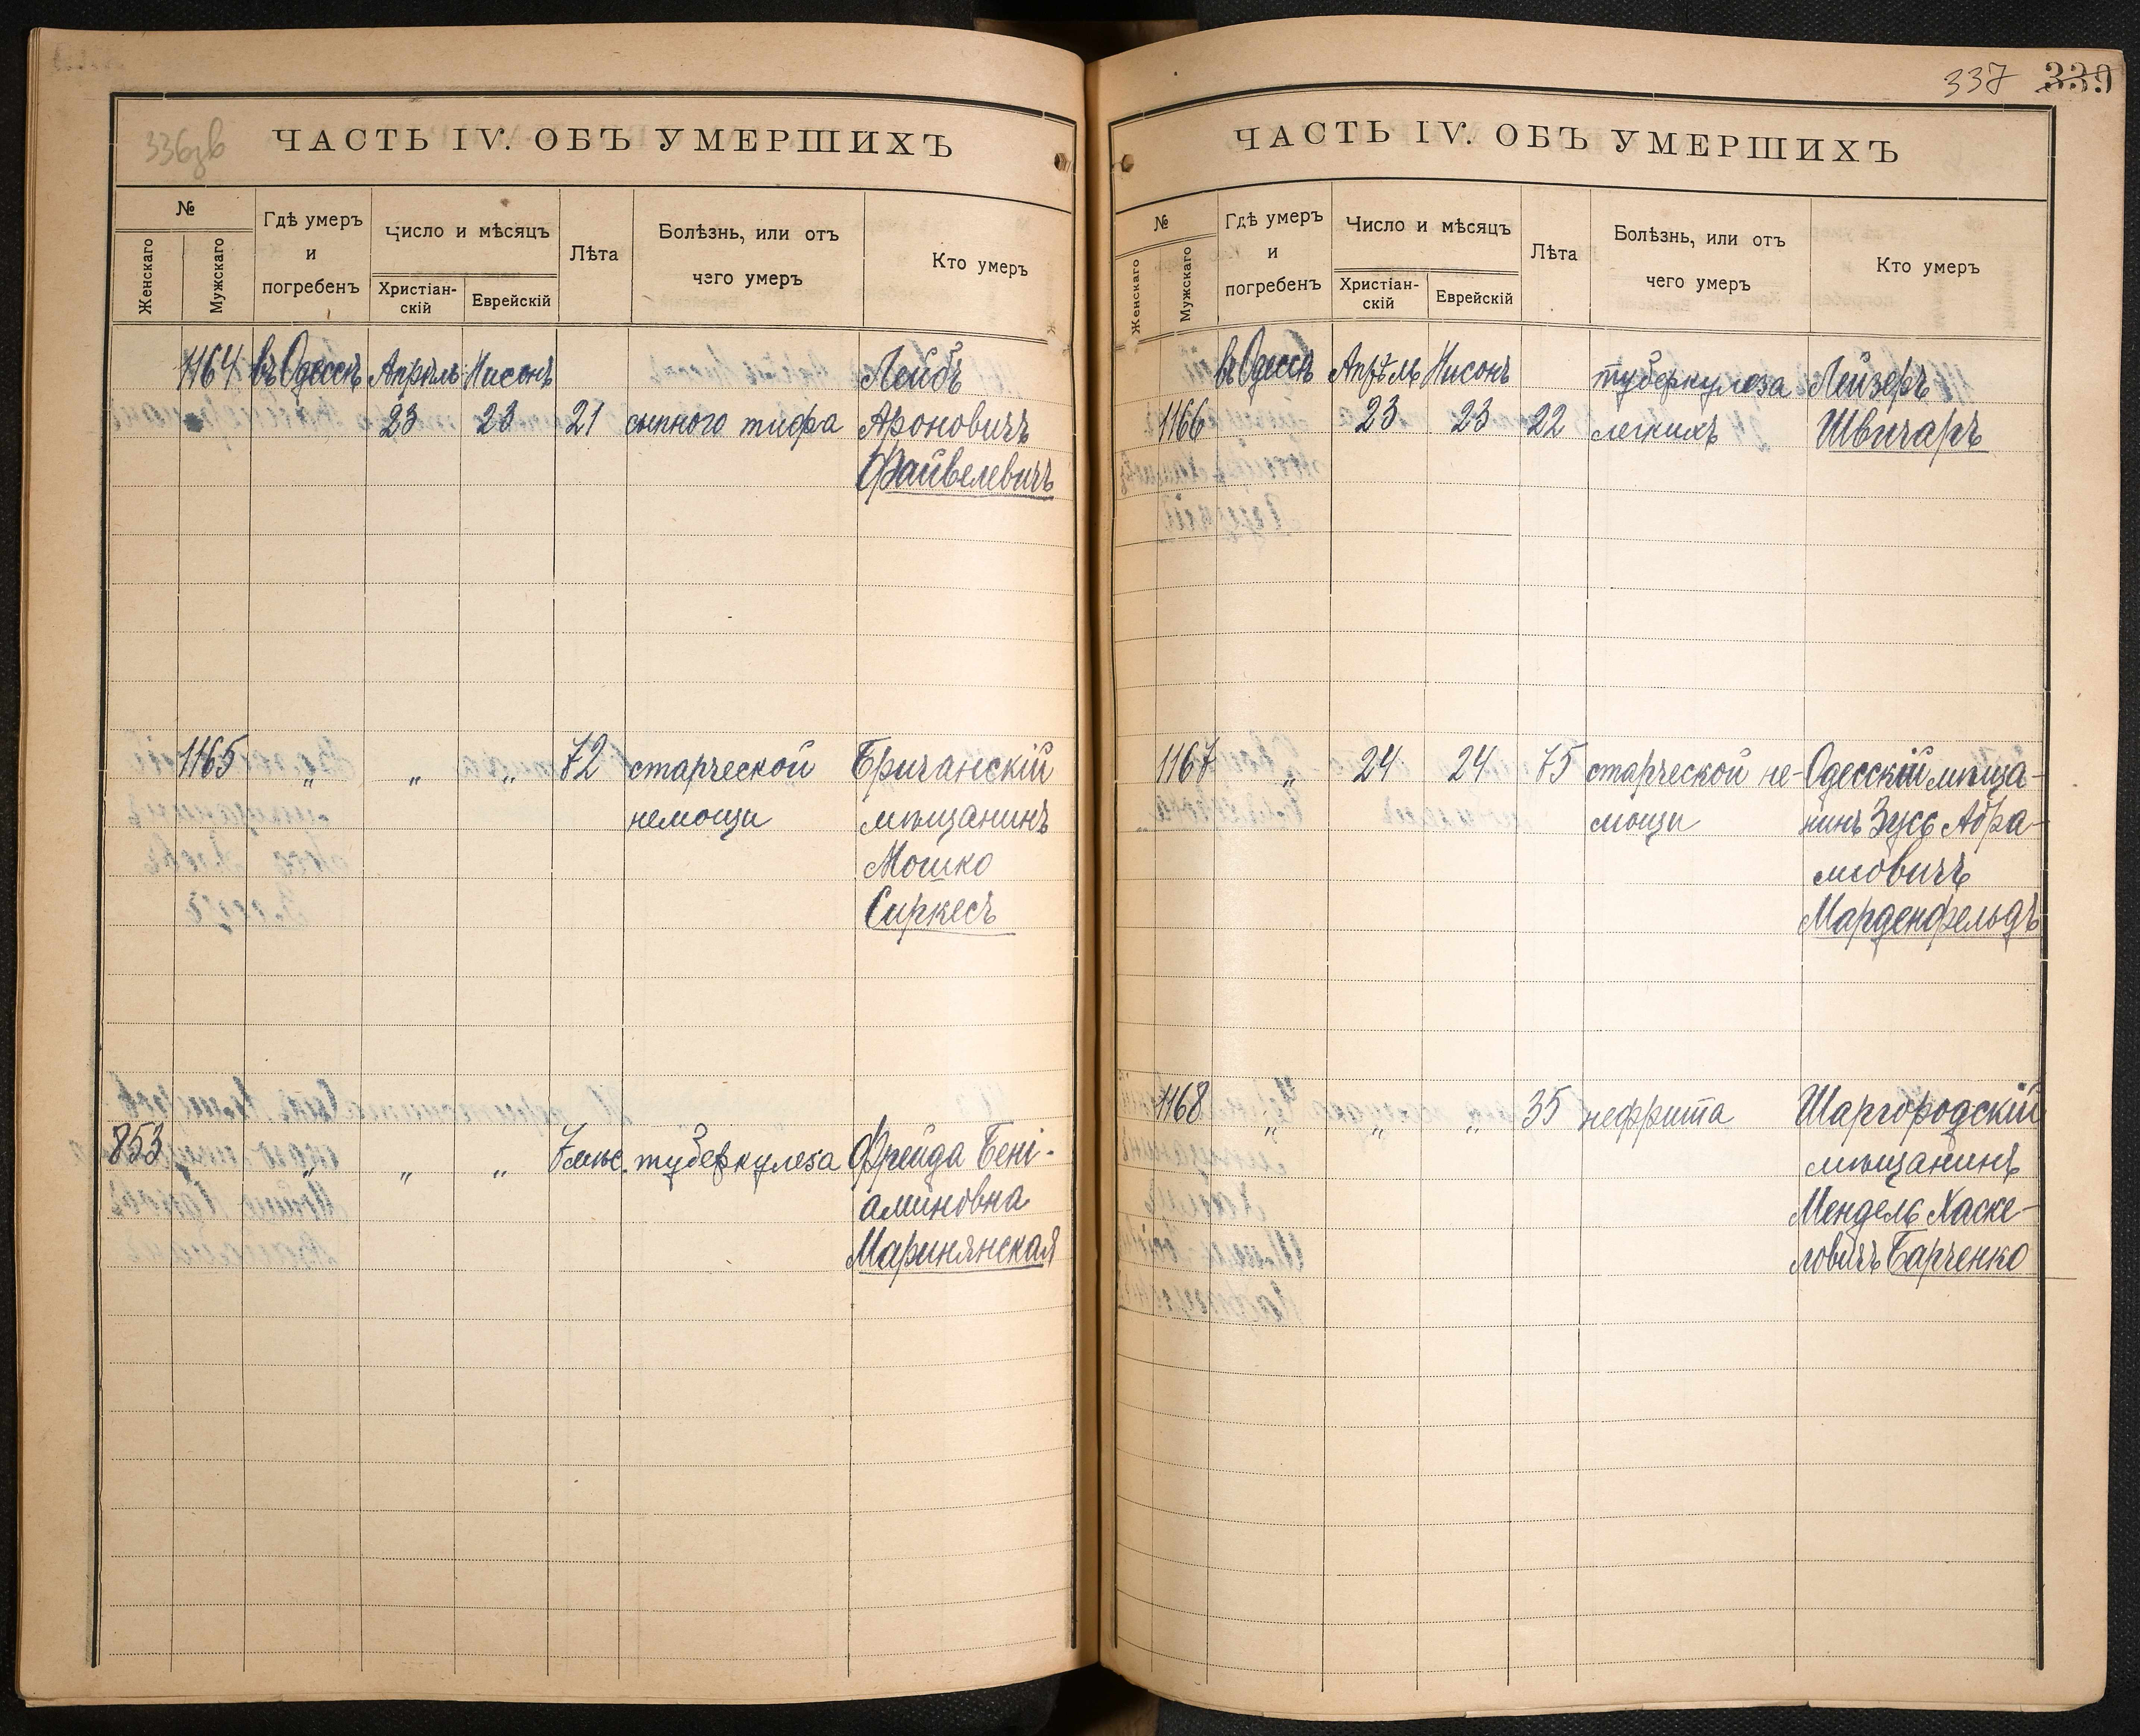 336зв
ЧАСТЬ IV. ОБЪ УМЕРШИХЪ
№
Женскаго
Мужскаго
Гдѣ умеръ
и
погребенъ
Число и мѣсяцъ
Христіан-
скій
Еврейскій
Лѣта
Болѣзнь, или отъ
чего умеръ
Кто умеръ
1164 въ Одессѣ Апрѣль Нисонъ Лейбъ
23 23 21 сыпного тифа Ароновичъ
Файвелевичъ
1165 " " " 72 старческой Бричанскій
немощи мѣщанинъ
Мошко
Сиркесъ
853 " " " 7 мѣс. туберкулеза Фрейда Бені-
аминовна
Маринянская
337 339
ЧАСТЬ IV. ОБЪ УМЕРШИХЪ
№
Женскаго
Мужскаго
Гдѣ умеръ
и
погребенъ
Число и мѣсяцъ
Христіан-
скій
Еврейскій
Лѣта
Болѣзнь, или отъ
чего умеръ
Кто умеръ
въ Одессѣ Апрѣль Нисонъ туберкулеза Лейзеръ
1166 23 23 22 легкихъ Швичаръ
1167 " 24 24 75 старческой не- Одесскій мѣща-
мощи нинъ Зусь Абра-
мовичъ
Марденфельдъ
1168 " " " 35 нефрита Шаргородскій
мѣщанинъ
Мендель Хаске-
ловичъ Барченко